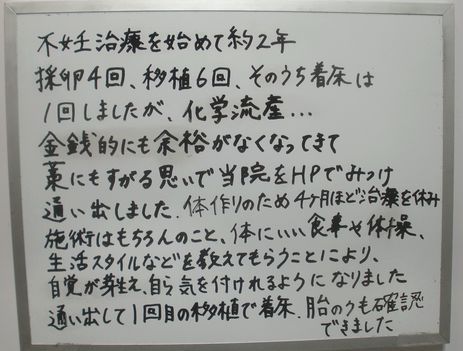 不妊治療を始めて約2年
採卵4回、移植6回、そのうち着床は
1回しましたが、化学流産...
金銭的にも余裕がなくなってきて
藁にもすがる思いで当院をHPでみつけ
通い出しました.体作りのため4ヶ月ほど治療を休み
施術はもちろんのこと、体にいい食事や体操、
生活スタイルなどを教えてもらうことにより、
自覚が芽生え、自ら気を付けれるようになりました
通い出して1回目の移植で着床.胎のうも確認
できました